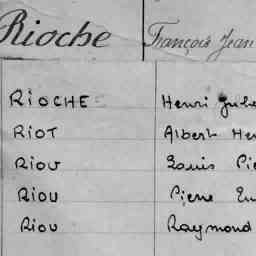 Rioche François Jean
RIOCHE Henri
RIOT Albert
RIOU Louis
RIOU Pierre
RIOU Raymond